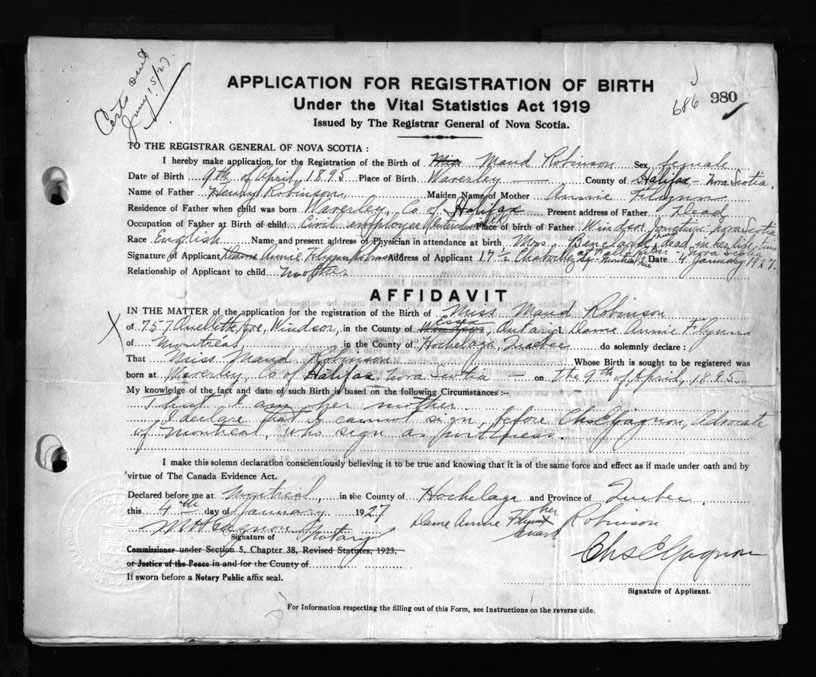 Certs sent
Jany 15/27
APPLICATION FOR REGISTRATION OF BIRTH
Under the Vital Statistics Act 1919
Issued by The Registrar General of Nova Scotia.
686 980
TO THE REGISTRAR GENERAL OF NOVA SCOTIA:
I hereby make application for the Registration of the Birth of Miss Maud Robinson Sex female
Date of Birth 9th of April, 1895 Place of Birth Waverley County of Halifax - Nova Scotia.
Name of Father Henry Robinson Maiden Name of Mother Annie Flynn
Residence of Father when child was born Waverley, Co. of Halifax Present address of Father Dead
Occupation of Father at Birth of child Civil employee Place of birth of Father Windsor Junction, Nova Scotia
Race English Name and present address of Physician in attendance at birth Mrs. dead, in her life time
Signature of Applicant Dame Annie Flynn Robinson Address of Applicant 17 Date 4 January 1927.
Relationship of Applicant to child mother
AFFIDAVIT
IN THE MATTER of the application for the registration of the Birth of Miss Maud Robinson
of 757 Ouellette Ave, Windsor, in the County of Essex, Ontario, Dame Annie Flynn
of Montreal, in the County of Hochelaga, Quebec do solemnly declare:
That Miss Maud Robinson Whose Birth is sought to be registered was
born at Waverley, Co. of Halifax Nova Scotia on the 9th of April, 1895
My knowledge of the fact and date of such Birth is based on the following Circumstances :-
That I am her mother.
I declare that I cannot sign, before Chs E Gagnon, Advocate
of Montreal, who sign as witness.
I make this solemn declaration conscientiously believing it to be true and knowing that it is of the same force and effect as if made under oath and by
virtue of The Canada Evidence Act.
Declared before me at Montreal, in the County of Hochelaga and Province of Quebec
this 4th day of January 1927 Dame Annie Flynn her Robinson
Gagnon mark
Signature of Notary
Commissioner under Section 5, Chapter 38, Revised Statutes, 1923, Chs E Gagnon
or Justice of the Peace in and for the County of
If sworn before a Notary Public affix seal.
Signature of Applicant.
For Information respecting the filling out of this Form, see Instructions on the reverse side.